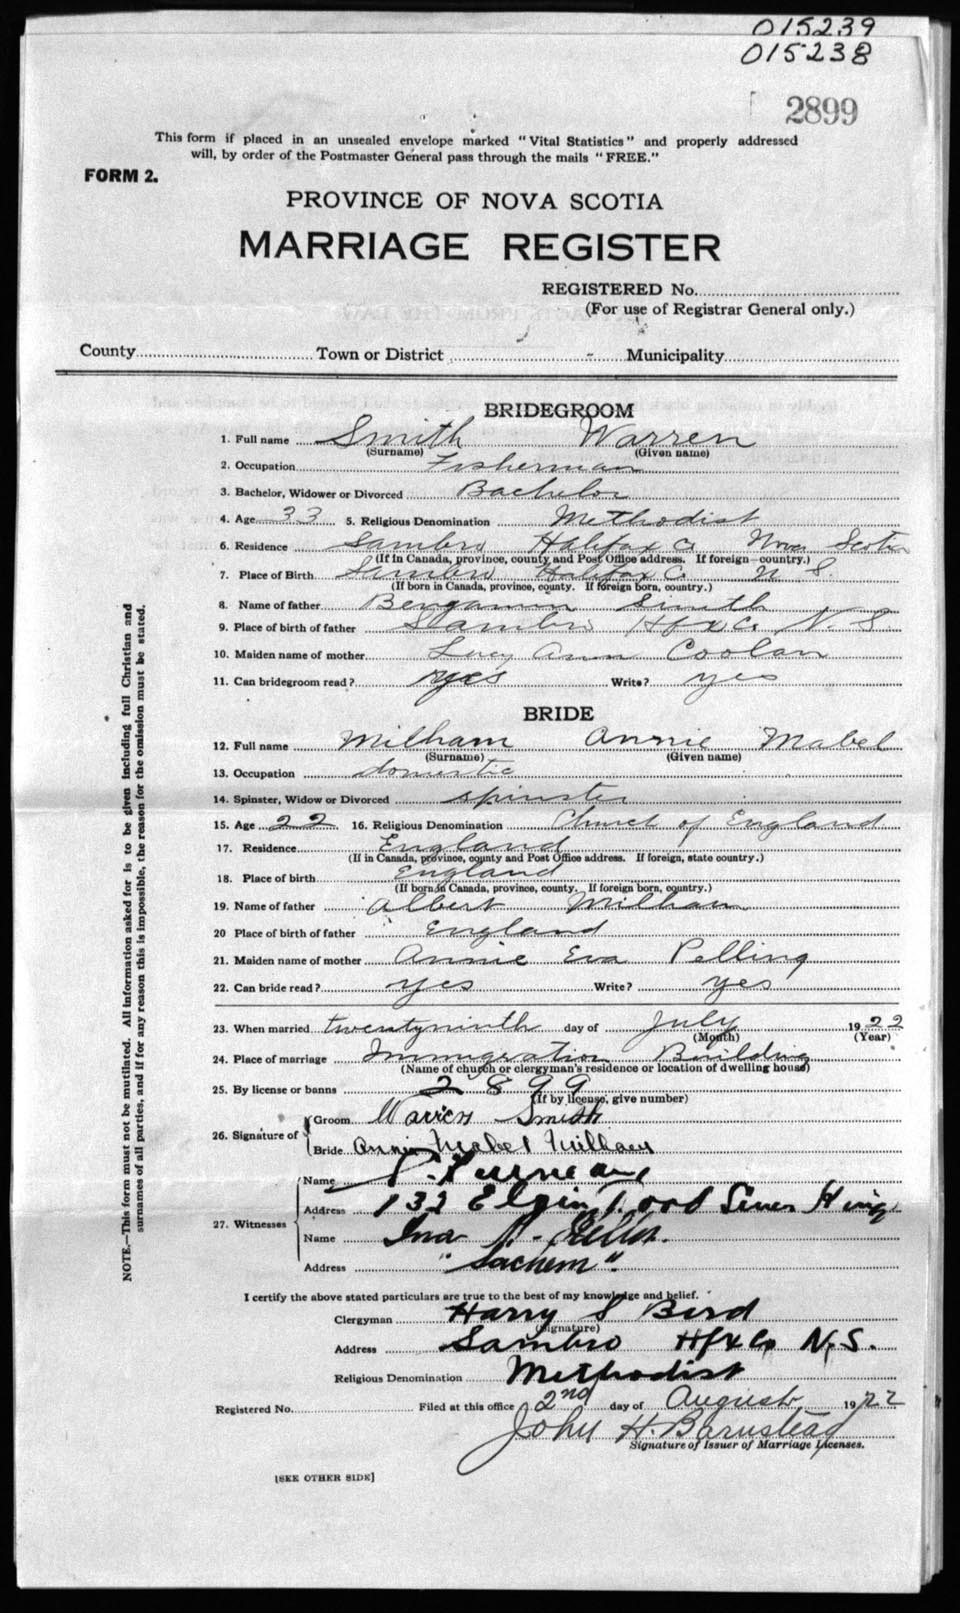 015239
015238
2899
This form if placed in an unsealed envelope marked "Vital Statistics" and properly addressed
will, by order of the Postmaster General pass through the mails "FREE."
FORM 2.
PROVINCE OF NOVA SCOTIA
MARRIAGE REGISTER
REGISTERED No.
(For use of Registrar General only.)
County Town or District Municipality
BRIDEGROOM
1. Full name Smith Warren
(Surname) (Given name)
2. Occupation Fisherman
3. Bachelor, Widower or Divorced Bachelor
4. Age 33 5. Religious Denomination Methodist
6. Residence Sambro Halifax Co Nova Scotia
(If in Canada, province, county and Post Office address. If foreign—country.)
7. Place of Birth Sambro Halifax Co N S.
(If born in Canada, province, county. If foreign born, country.)
8. Name of father Bengamin Smith
9. Place of birth of father Sambro Hfx Co N. S.
10. Maiden name of mother Lucy Ann Coolan
11. Can bridegroom read? yes Write? yes
BRIDE
12. Full name Milham Annie Mabel
(Surname) (Given name)
13. Occupation domestic
14. Spinster, Widow or Divorced spinster
15. Age 22 16. Religious Denomination Church of England
17. Residence England
(If in Canada, province, county and Post Office address. If foreign, state country.)
18. Place of birth England
(If born in Canada, province, county. If foreign born, country.)
19. Name of father Albert Milham
20 Place of birth of father England
21. Maiden name of mother Annie Eva Pelling
22. Can bride read? yes Write? yes
23. When married twentyninth day of July 1922
(Month) (Year)
24. Place of marriage Immigration Building
(Name of church or clergyman's residence or location of dwelling house)
25. By license or banns 2899
(If by license, give number)
26. Signature of Groom Warren Smith
Bride Annie Mabel Milham
27. Witnesses
Name
Address 132 Elgin Road Seven Kings
Name Ina
Address "Sachem".
I certify the above stated particulars are true to the best of my knowledge and belief.
Clergyman Harry S Bird
(Signature)
Address Sambro Hfx Co N.S.
Religious Denomination Methodist
Registered No. Filed at this office 2nd day of August 1922
John H. Barnstead
Signature of Issuer of Marriage Licenses.
[SEE OTHER SIDE]
NOTE.—This form must not be mutilated. All information asked for is to be given including full Christian and
surnames of all parties, and if for any reason this is impossible, the reason for the omission must be stated.